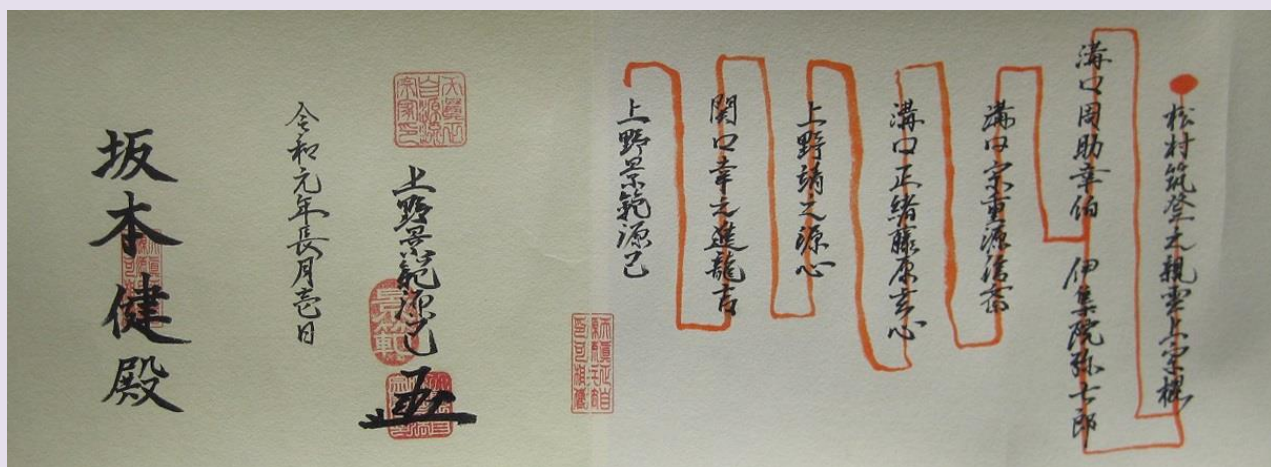 松村筑登之親雲上宗棍
溝口周助幸伯 伊集院弥七郎
溝口宗重源信斎
溝口正緒藤原玄心
上野靖之源心
関口幸元進龍吉
上野景範源己
上野景範源己
令和元年長月壱日
坂本健殿